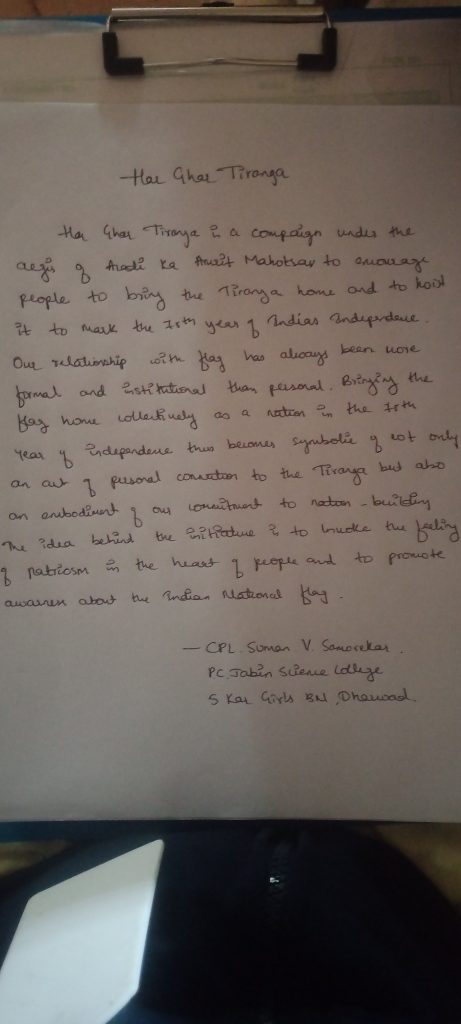 Har Ghar Tiranga
Har Ghar Tiranga is a campaign under the
aegis of Azadi Ka Amrit Mahotsav to encourage
people to bring the Tiranga home and to hoist
it to mark the 75th year of Indias Independence.
Our relationship with flag has always been more
formal and institutional than personal. Bringing the
flag home collectively as a nation in the 75th
year of independence thus becomes symbolic of not only
an act of personal connection to the Tiranga but also
an embodiment of our commitment to nation-building
The idea behind the initiative is to invoke the feeling
of patriosm in the heart of people and to promote
awarness about the Indian National flag.
— CPL. Suman V.
PC. Jabin Science College
5 Kar Girls BN, Dharwad.